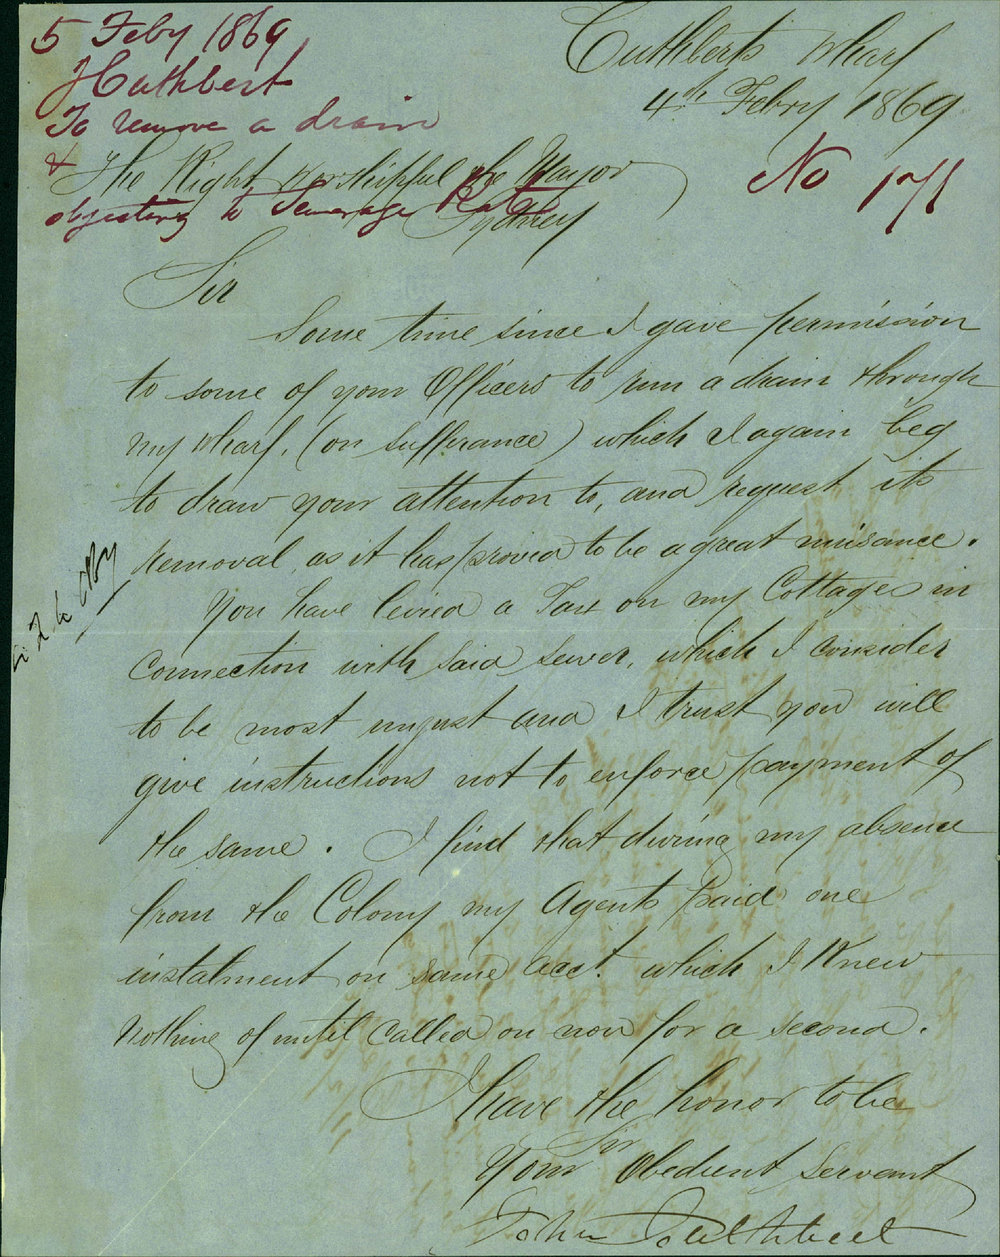 5 Feby 1869
J Cuthbert
To remove a drain
&
objecting to Sewerage Rate
Cuthberts Wharf
4th Febry 1869
No 171
The Right Worshipful the Mayor
Sydney
Sir
Some time since I gave permission
to some of your Officers to run a drain through
my wharf, (on sufferance) which I again beg
to draw your attention to, and request its
removal, as it has proved to be a great nuisance.
You have levied a Tax on my Cottages in
connection with said sewer, which I consider
to be most unjust and I trust you will
give instructions not to enforce payment of
the same. I find that during my absence
from the Colony my Agents paid one
instalment on same acct. which I Knew
Nothing of until called on now for a second.
I have the honor to be
Sir
Your Obedient Servant
John Cuthbert